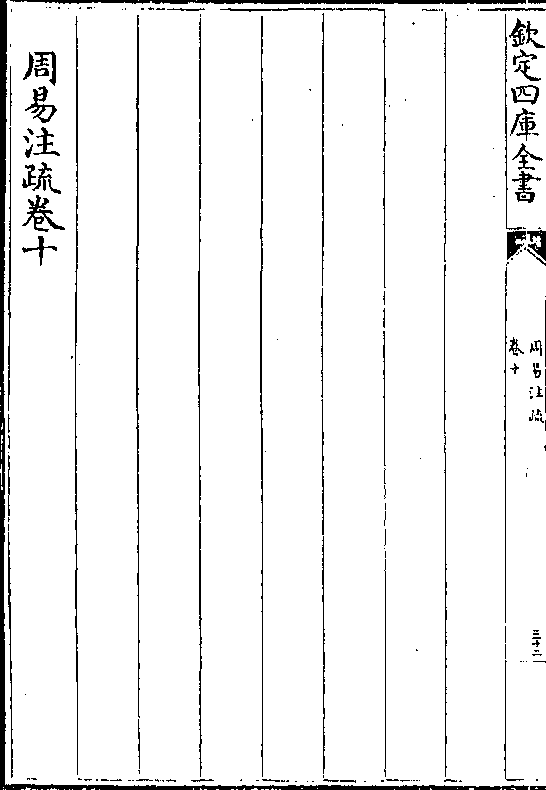 欽定四庫全書
周易注疏
卷十
三十二
周易注疏卷十